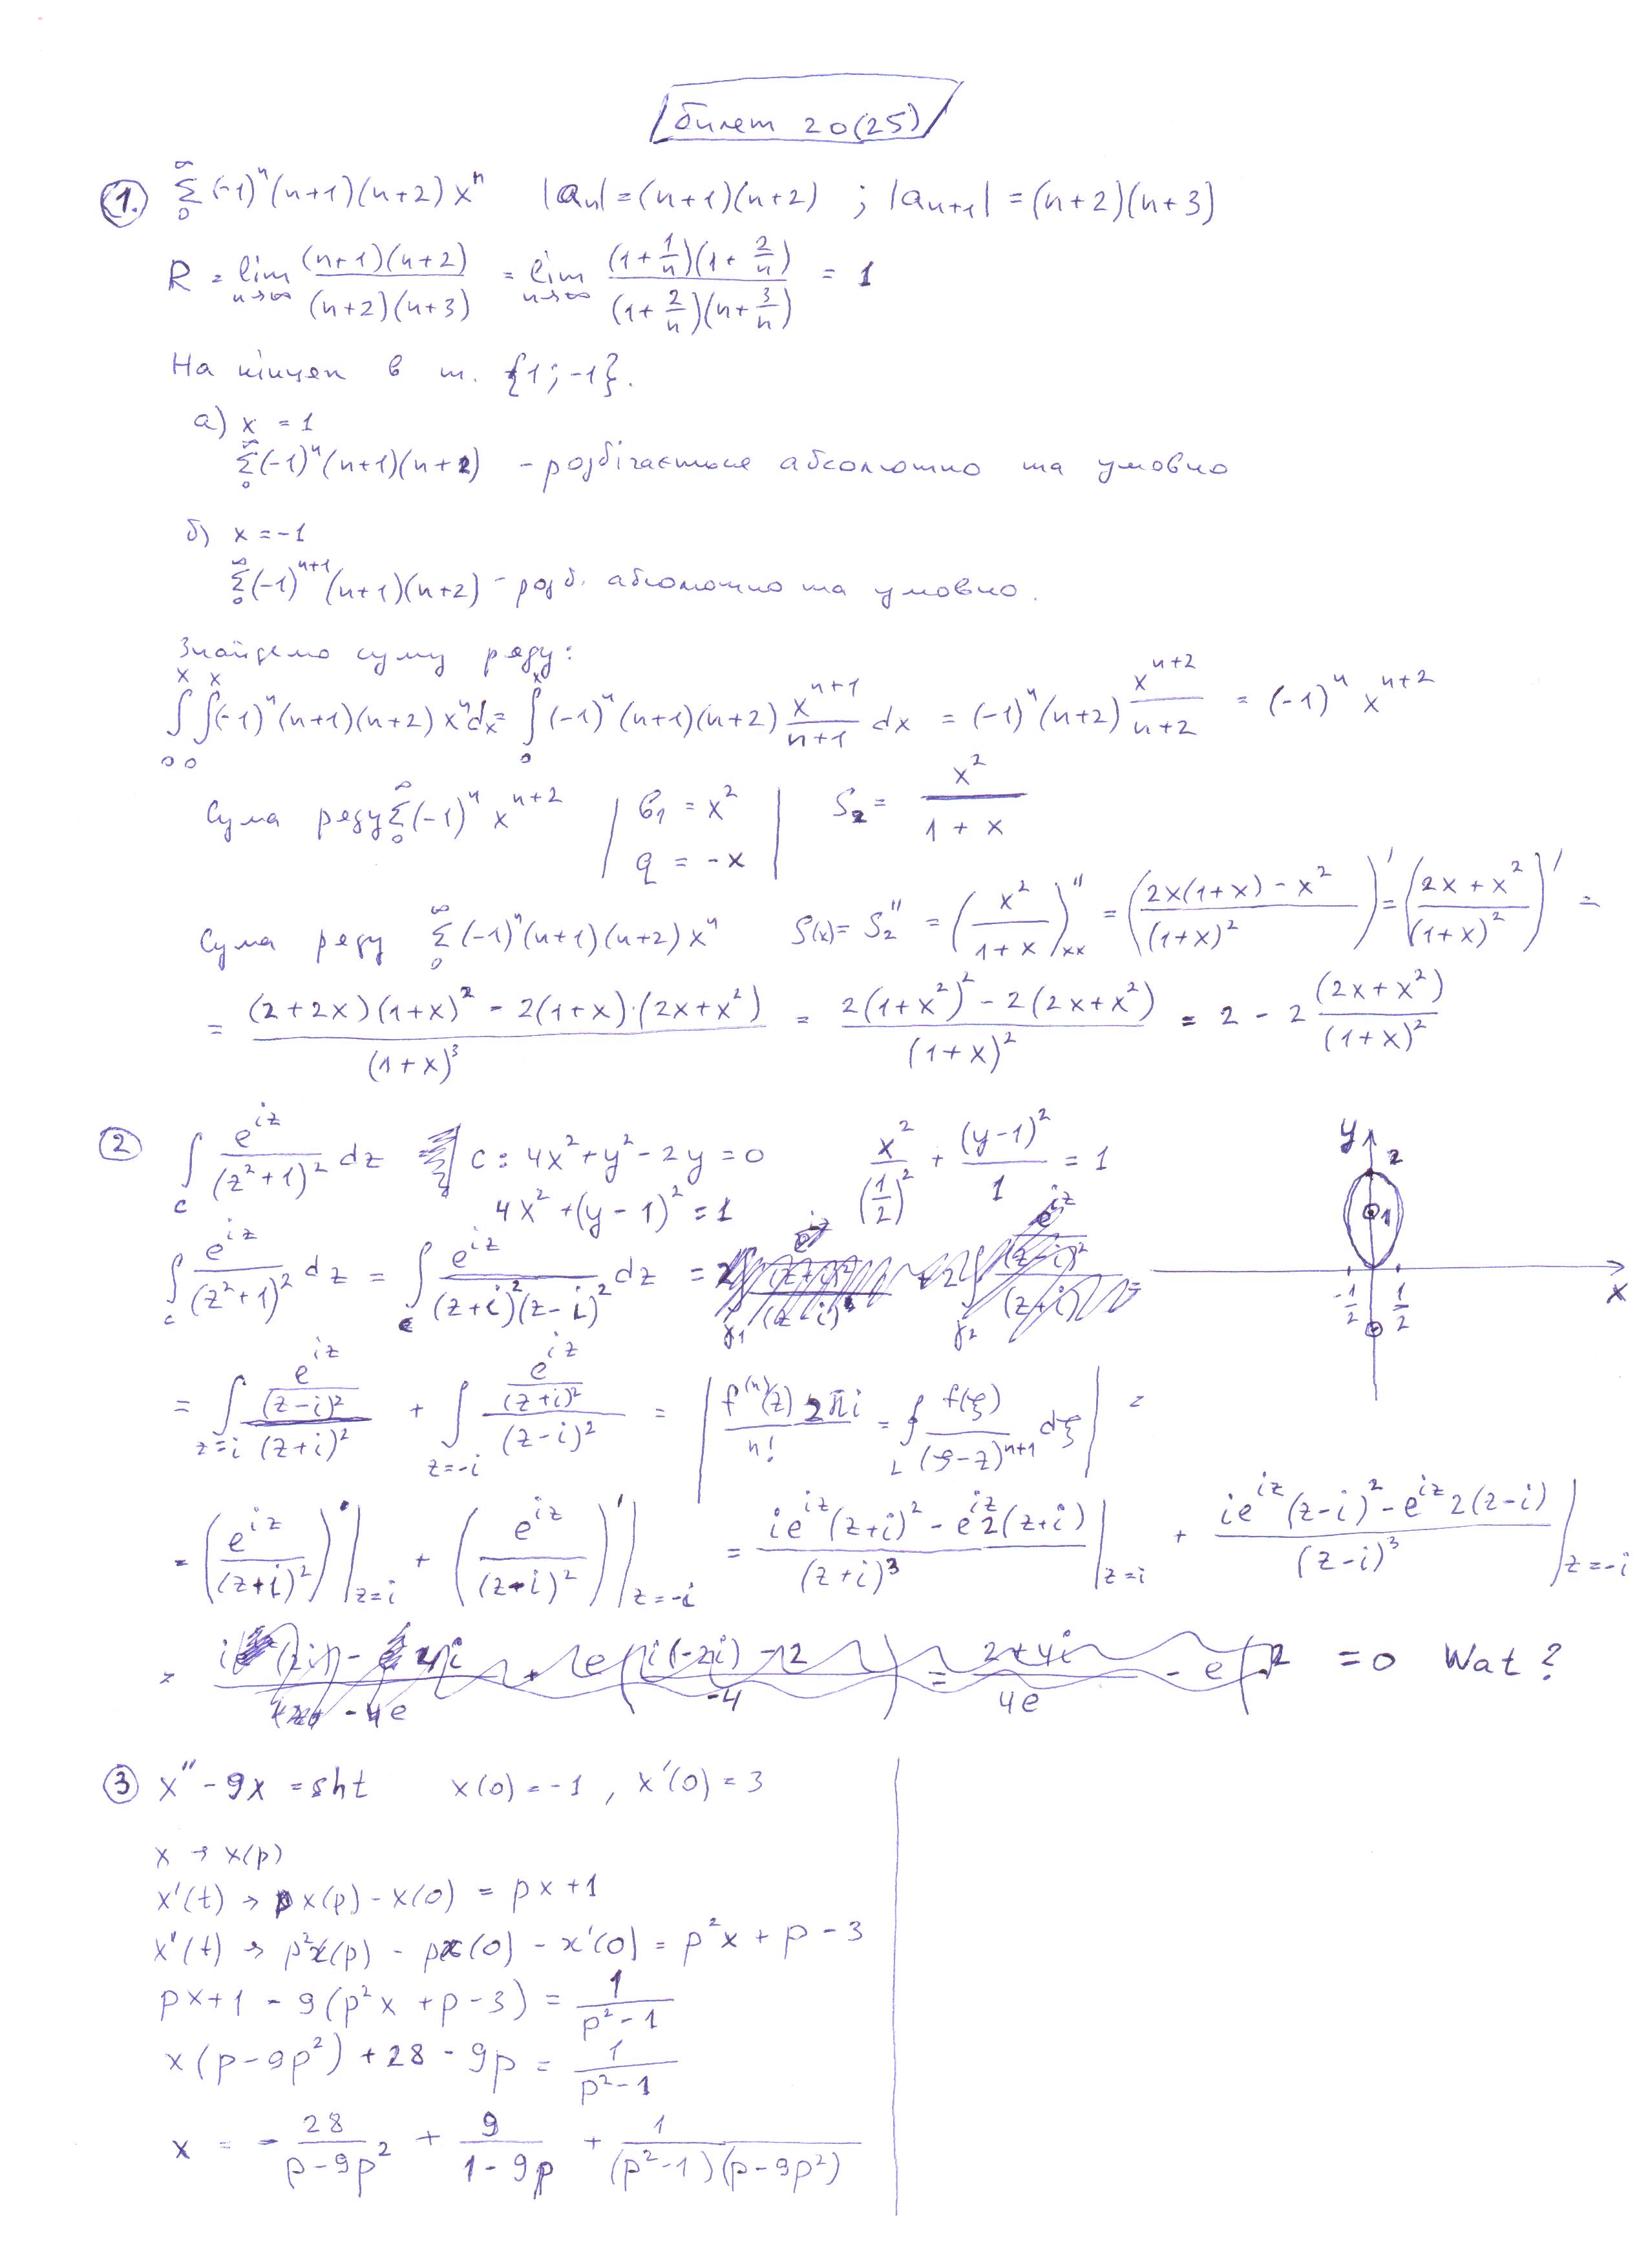 билет 20(25)
1. ∞ Σ 0 (-1)^n (n+1)(n+2) x^n   |a_n| = (n+1)(n+2) ; |a_{n+1}| = (n+2)(n+3)
R = lim n→∞ (n+1)(n+2) / (n+2)(n+3) = lim n→∞ (1+1/n)(1+2/n) / (1+2/n)(n+3/n) = 1
На кінцях в т. {1; -1}.
а) x = 1
∞ Σ 0 (-1)^n (n+1)(n+2) - розбігається абсолютно та умовно
б) x = -1
∞ Σ 0 (-1)^{n+1} (n+1)(n+2) - розб. абсолютно та умовно.
Знайдемо суму ряду:
∫_0^x ∫_0^x (-1)^n (n+1)(n+2) x^n dx = ∫_0^x (-1)^n (n+1)(n+2) x^{n+1}/(n+1) dx = (-1)^n (n+2) x^{n+2}/(n+2) = (-1)^n x^{n+2}
Сума ряду ∞ Σ 0 (-1)^n x^{n+2} | b_1 = x^2 q = -x | S_2 = x^2/(1+x)
Сума ряду ∞ Σ 0 (-1)^n (n+1)(n+2) x^n   S(x) = S_2'' = (x^2/(1+x))''_{xx} = ((2x(1+x) - x^2)/(1+x)^2)' = ((2x+x^2)/(1+x)^2)' =
= ((2+2x)(1+x)^2 - 2(1+x)·(2x+x^2))/(1+x)^3 = (2(1+x^2)^2 - 2(2x+x^2))/(1+x)^2 = 2 - 2 (2x+x^2)/(1+x)^2
2 ∫_c e^{iz}/(z^2+1)^2 dz   c: 4x^2+y^2-2y=0   x^2/(1/2)^2 + (y-1)^2/1 = 1
4x^2+(y-1)^2=1
y 2 1 x -1/2 1/2
∫_c e^{iz}/(z^2+1)^2 dz = ∫_c e^{iz}/((z+i)^2(z-i)^2) dz =
= ∫_{z=i} (e^{iz}/(z-i)^2)/(z+i)^2 + ∫_{z=-i} (e^{iz}/(z+i)^2)/(z-i)^2 = | f^{(n)}(z) 2πi/n! = ∮_L f(ξ)/(ξ-z)^{n+1} dξ | =
= (e^{iz}/(z+i)^2)' |_{z=i} + (e^{iz}/(z-i)^2)' |_{z=-i} = (ie^{iz}(z+i)^2 - e^{iz}2(z+i))/(z+i)^3 |_{z=i} + (ie^{iz}(z-i)^2 - e^{iz}2(z-i))/(z-i)^3 |_{z=-i}
= 0   Wat?
3 x'' - 9x = sht   x(0) = -1, x'(0) = 3
x → x(p)
x'(t) → px(p) - x(0) = px+1
x''(t) → p^2x(p) - px(0) - x'(0) = p^2x + p - 3
px+1 - 9(p^2x + p - 3) = 1/(p^2-1)
x(p-9p^2) + 28 - 9p = 1/(p^2-1)
x = - 28/(p-9p^2) + 9/(1-9p) + 1/((p^2-1)(p-9p^2))